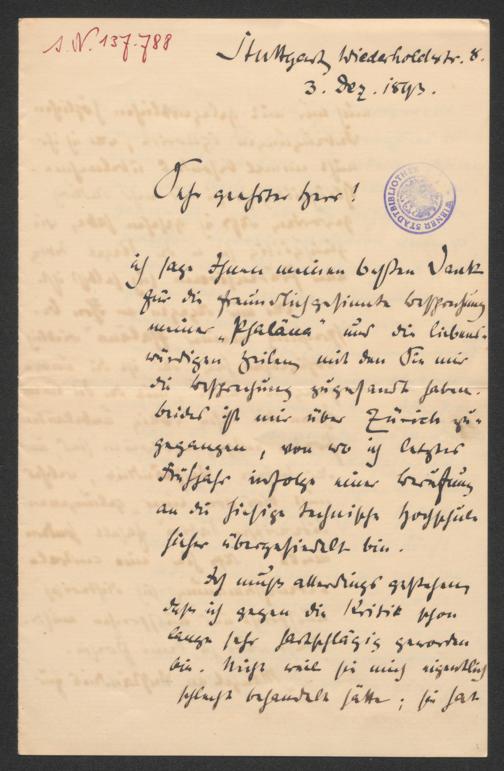 s. N. 137.788
Stuttgart, Wiederholdstr. 8.
3. Dez. 1893.
Sehr geehrter Herr!
WIENER STADTBIBLIOTHEK
ich sage Ihnen meinen besten Dank
für die freundlichgesinnte Besprechung
meiner „Phaläna“ und die liebens-
würdigen Zeilen, mit den Sie mir
die Besprechung zugesandt haben.
beides ist mir über Zürich zu-
gegangen, von wo ich letztes
Frühjahr infolge einer Berufung
an die hiesige technische Hochschule
hieher übergesiedelt bin.
Ich muß allerdings gestehen,
daß ich gegen die Kritik schon
lange sehr hartschlägig geworden
bin. Nicht weil sie mich eigentlich
schlecht behandelt hätte; sie hat